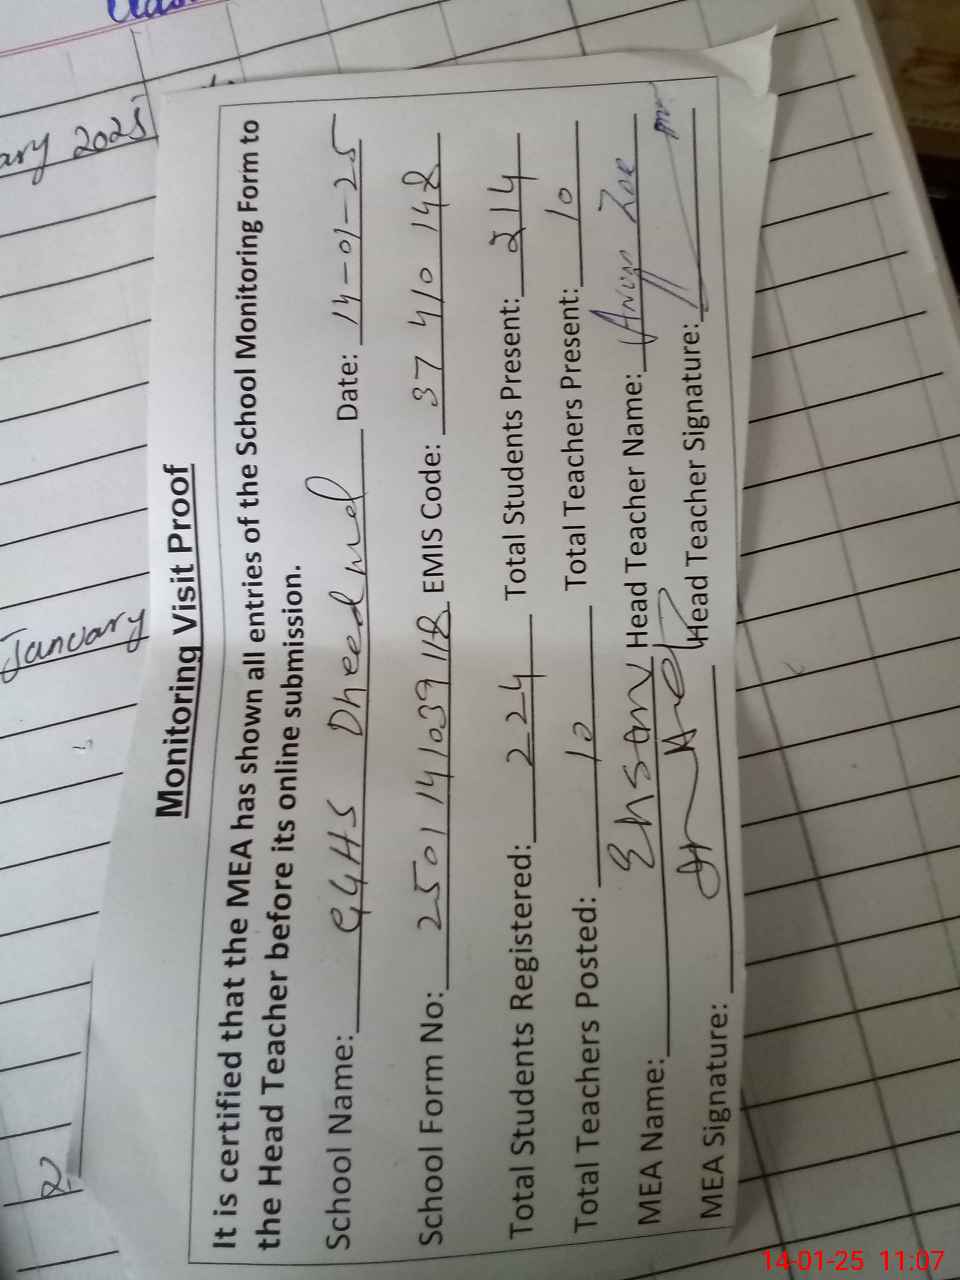 ary 2025
January
Monitoring Visit Proof
It is certified that the MEA has shown all entries of the School Monitoring Form to
the Head Teacher before its online submission.
School Name: GGHS Dheedwal Date: 14-01-25
School Form No: 2501141039118 EMIS Code: 37410148
Total Students Registered: 224 Total Students Present: 214
Total Teachers Posted: 10 Total Teachers Present: 10
MEA Name: Ehsan Head Teacher Name:
MEA Signature: Head Teacher Signature:
14-01-25 11:07